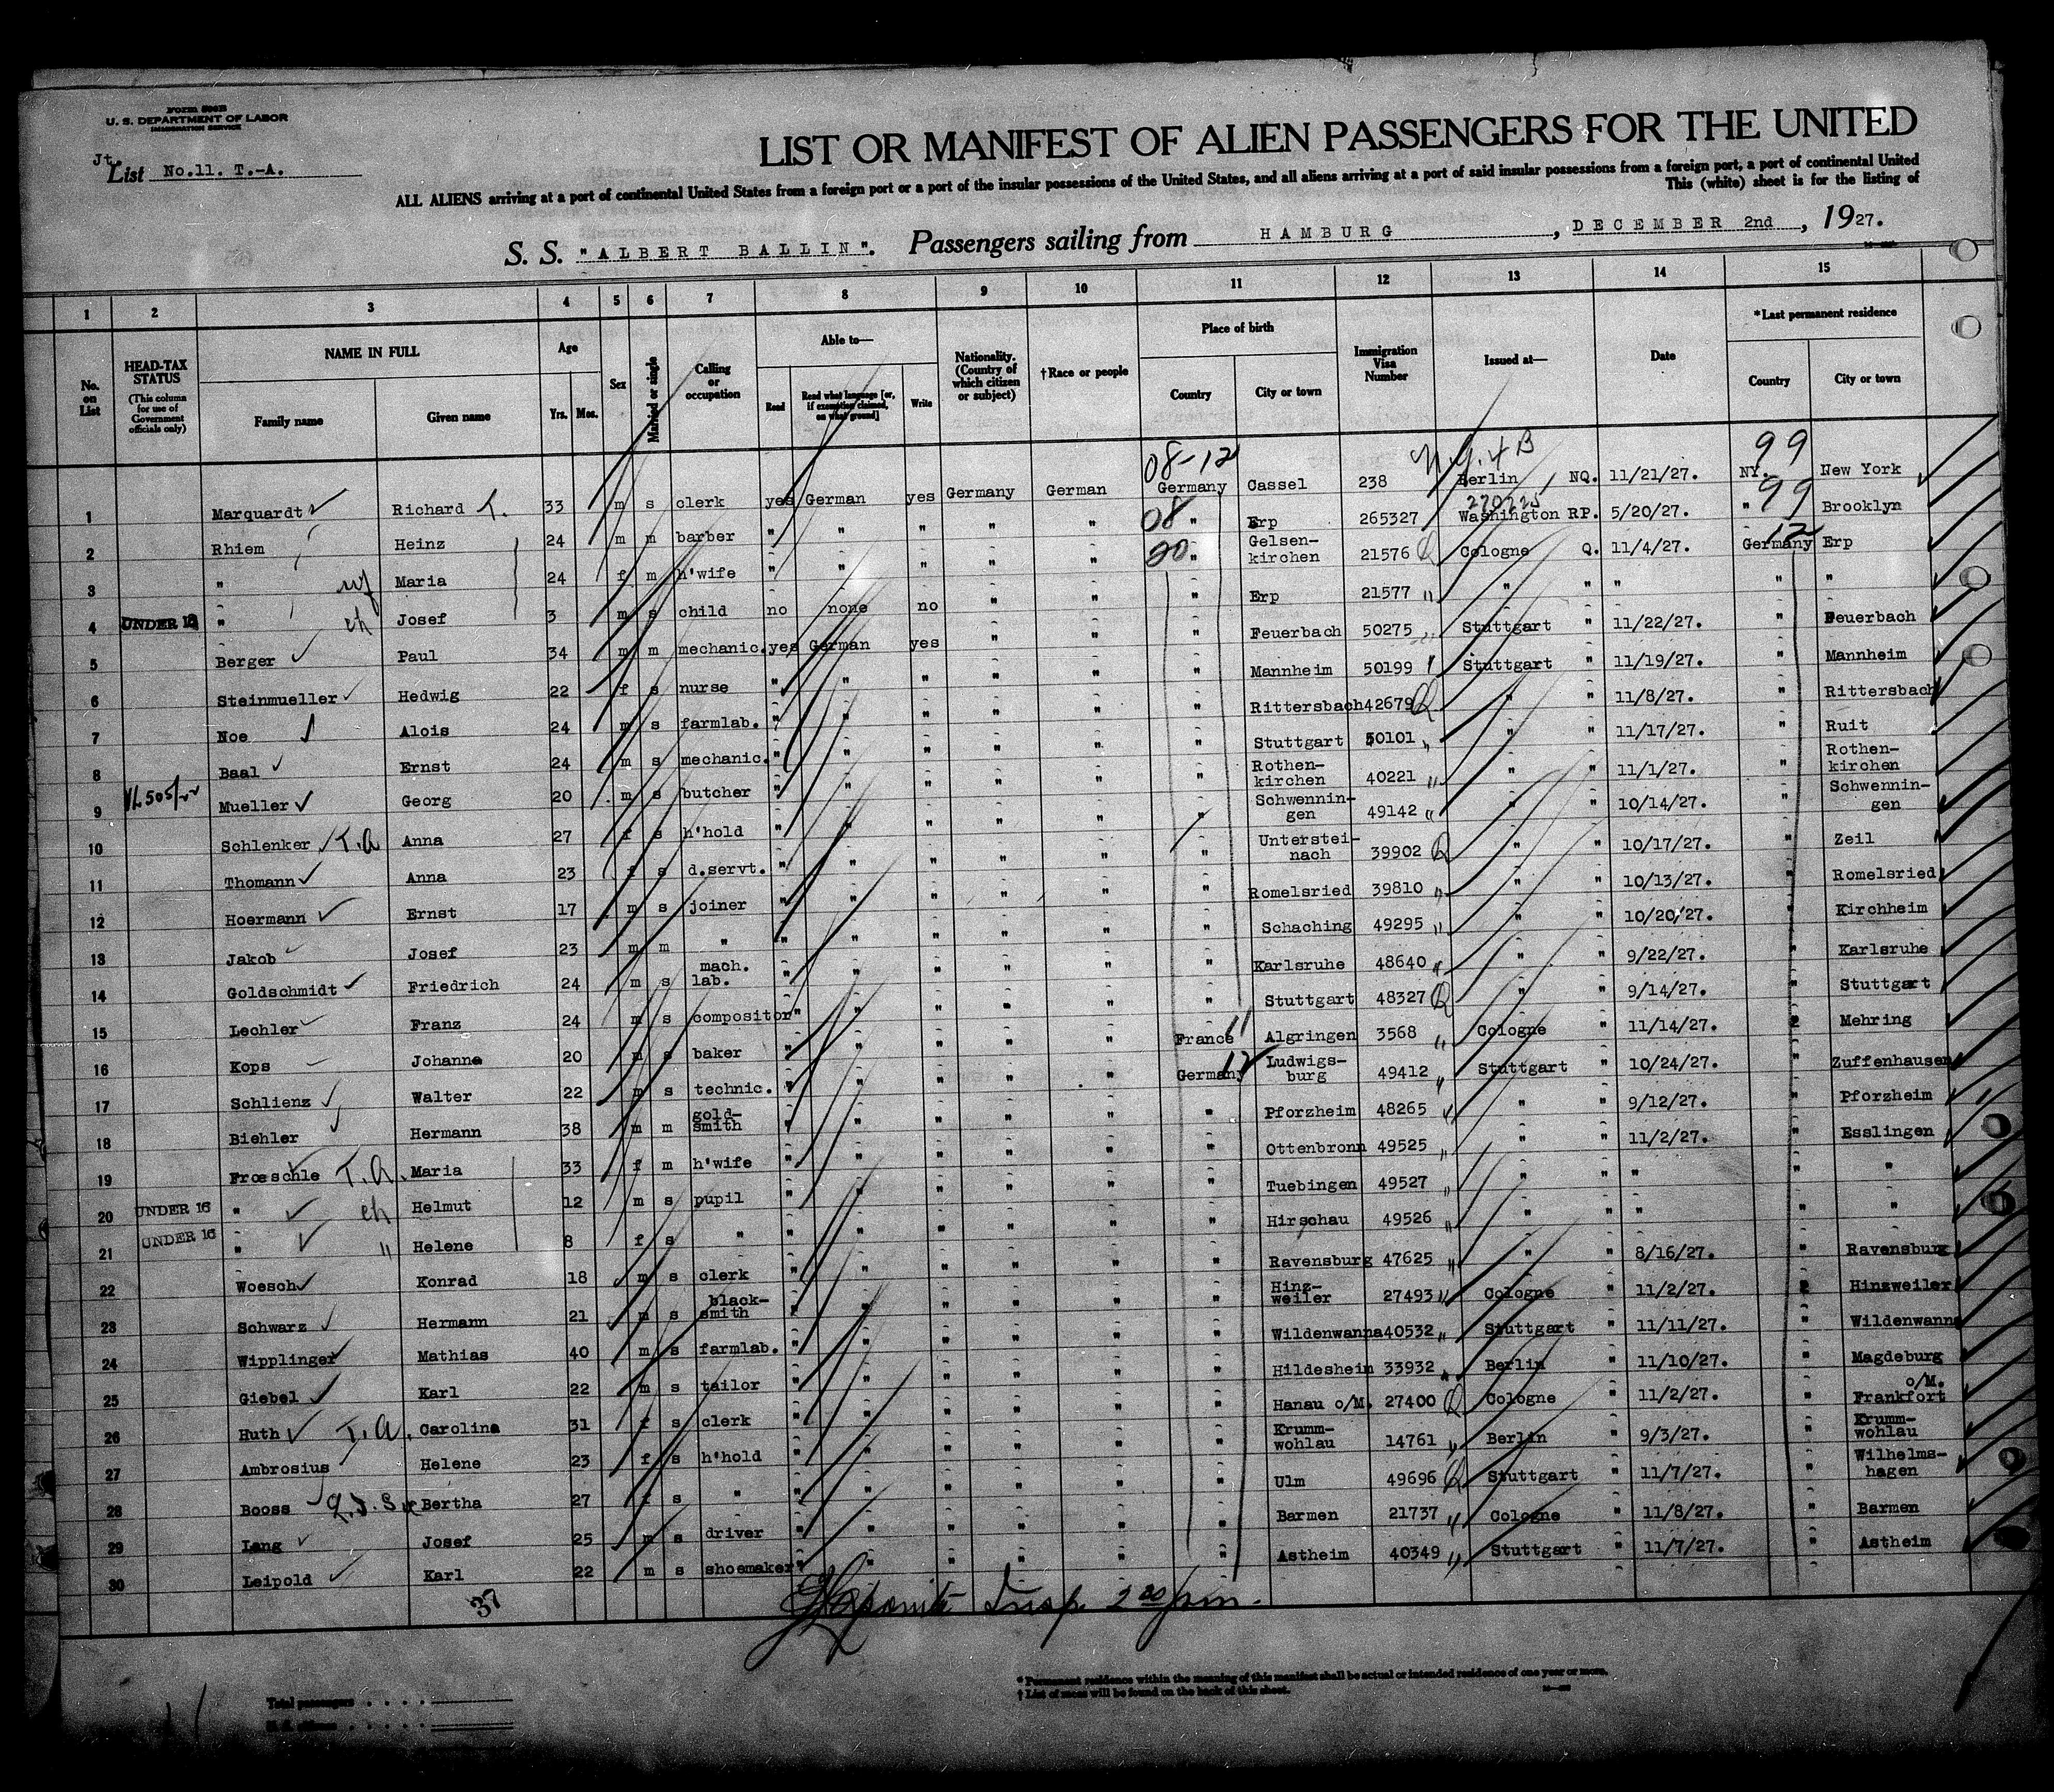 Form 500B
U. S. DEPARTMENT OF LABOR
IMMIGRATION SERVICE
Jt.
List No.11. T.-A.
LIST OR MANIFEST OF ALIEN PASSENGERS FOR THE UNITED
ALL ALIENS arriving at a port of continental United States from a foreign port or a port of the insular possessions of the United States, and all aliens arriving at a port of said insular possessions from a foreign port, a port of continental United
This (white) sheet is for the listing of
S. S. "ALBERT BALLIN". Passengers sailing from HAMBURG, DECEMBER 2nd, 1927.
1 2 3 4 5 6 7 8 9 10 11 12 13 14 15
No. on List
HEAD-TAX STATUS (This column for use of Government officials only)
NAME IN FULL Family name Given name
Age Yrs. Mos.
Sex
Married or single
Calling or occupation
Able to— Read Read what language [or, if exemption claimed, on what ground] Write
Nationality. (Country of which citizen or subject)
†Race or people
Place of birth Country City or town
Immigration Visa Number
Issued at—
Date
*Last permanent residence Country City or town
08-12 N.Y. & B 99
1 Marquardt Richard T. 33 m s clerk yes German yes Germany German Germany Cassel 238 Berlin NQ. 11/21/27. NY. New York
08 270225 99
2 Rhiem Heinz 24 m m barber " " " " " " Erp 265327 Washington RP. 5/20/27. " Brooklyn
20 12
3 " wf Maria 24 f m h'wife " " " " " " Gelsen-kirchen 21576 Q Cologne Q. 11/4/27. Germany Erp
4 UNDER 16 " ch Josef 3 m s child no none no " " " Erp 21577 " " " " " "
5 Berger Paul 34 m m mechanic. yes German yes " " " Feuerbach 50275 " Stuttgart " 11/22/27. " Feuerbach
6 Steinmueller Hedwig 22 f s nurse " " " " " " Mannheim 50199 Stuttgart " 11/19/27. " Mannheim
7 Noe Alois 24 m s farmlab. " " " " " " Rittersbach 42679 Q " " 11/8/27. " Rittersbach
8 Baal Ernst 24 m s mechanic. " " " " " " Stuttgart 50101 " " " 11/17/27. " Ruit
9 Mueller Georg 20 m s butcher " " " " " " Rothen-kirchen 40221 " " " 11/1/27. " Rothen-kirchen
10 Schlenker T.A Anna 27 f s h'hold " " " " " " Schwennin-gen 49142 " " " 10/14/27. " Schwennin-gen
11 Thomann Anna 23 f s d.servt. " " " " " " Unterstei-nach 39902 Q " " 10/17/27. " Zeil
12 Hoermann Ernst 17 m s joiner " " " " " " Romelsried 39810 " " " 10/13/27. " Romelsried
13 Jakob Josef 23 m m " " " " " " " Schaching 49295 " " " 10/20/27. " Kirchheim
14 Goldschmidt Friedrich 24 m s mach. lab. " " " " " " Karlsruhe 48640 " " " 9/22/27. " Karlsruhe
15 Lechler Franz 24 m s compositor " " " " " " Stuttgart 48327 Q " " 9/14/27. " Stuttgart
16 Kops Johanne 20 m s baker " " " " " France 11 Algringen 3568 " Cologne " 11/14/27. " Mehring
17 Schlienz Walter 22 m s technic. " " " " " Germany 12 Ludwigs-burg 49412 " Stuttgart " 10/24/27. " Zuffenhausen
18 Biehler Hermann 38 m m gold-smith " " " " " " Pforzheim 48265 " " 9/12/27. " Pforzheim
19 Froeschle T.A. Maria 33 f m h'wife " " " " " " Ottenbronn 49525 " " " 11/2/27. " Esslingen
20 UNDER 16 " ch Helmut 12 m s pupil " " " " " " Tuebingen 49527 " " " " " "
21 UNDER 16 " " Helene 8 f s " " " " " " " Hirschau 49526 " " " " " "
22 Woesch Konrad 18 m s clerk " " " " " " Ravensburg 47625 " " " 8/16/27. " Ravensburg
23 Schwarz Hermann 21 m s black-smith " " " " " " Hinz-weiler 27493 " Cologne " 11/2/27. " Hinzweiler
24 Wipplinger Mathias 40 m s farmlab. " " " " " " Wildenwanna 40532 " Stuttgart " 11/11/27. " Wildenwanna
25 Giebel Karl 22 m s tailor " " " " " " Hildesheim 33932 " Berlin " 11/10/27. " Magdeburg
26 Huth T.A. Carolina 31 f s clerk " " " " " " Hanau o/M. 27400 Q Cologne " 11/2/27. " Frankfort o/M.
27 Ambrosius Helene 23 f s h'hold " " " " " " Krumm-wohlau 14761 " Berlin " 9/3/27. " Krumm-wohlau
28 Booss Bertha 27 f s " " " " " " " Ulm 49696 Q Stuttgart " 11/7/27. " Wilhelms-hagen
29 Lang Josef 25 m s driver " " " " " " Barmen 21737 " Cologne " 11/8/27. " Barmen
30 Leipold Karl 22 m s shoemaker " " " " " " Astheim 40349 " Stuttgart " 11/7/27. " Astheim
37
Insp. 2 00 pm.
* Permanent residence within the meaning of this manifest shall be actual or intended residence of one year or more.
† List of races will be found on the back of this sheet.
Total passengers
U. S. citizens